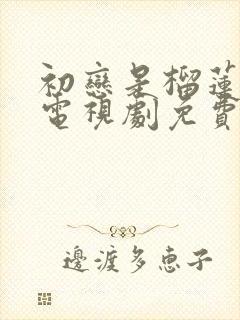 初戀是榴蓮
電視劇免費
邊渡多恵子